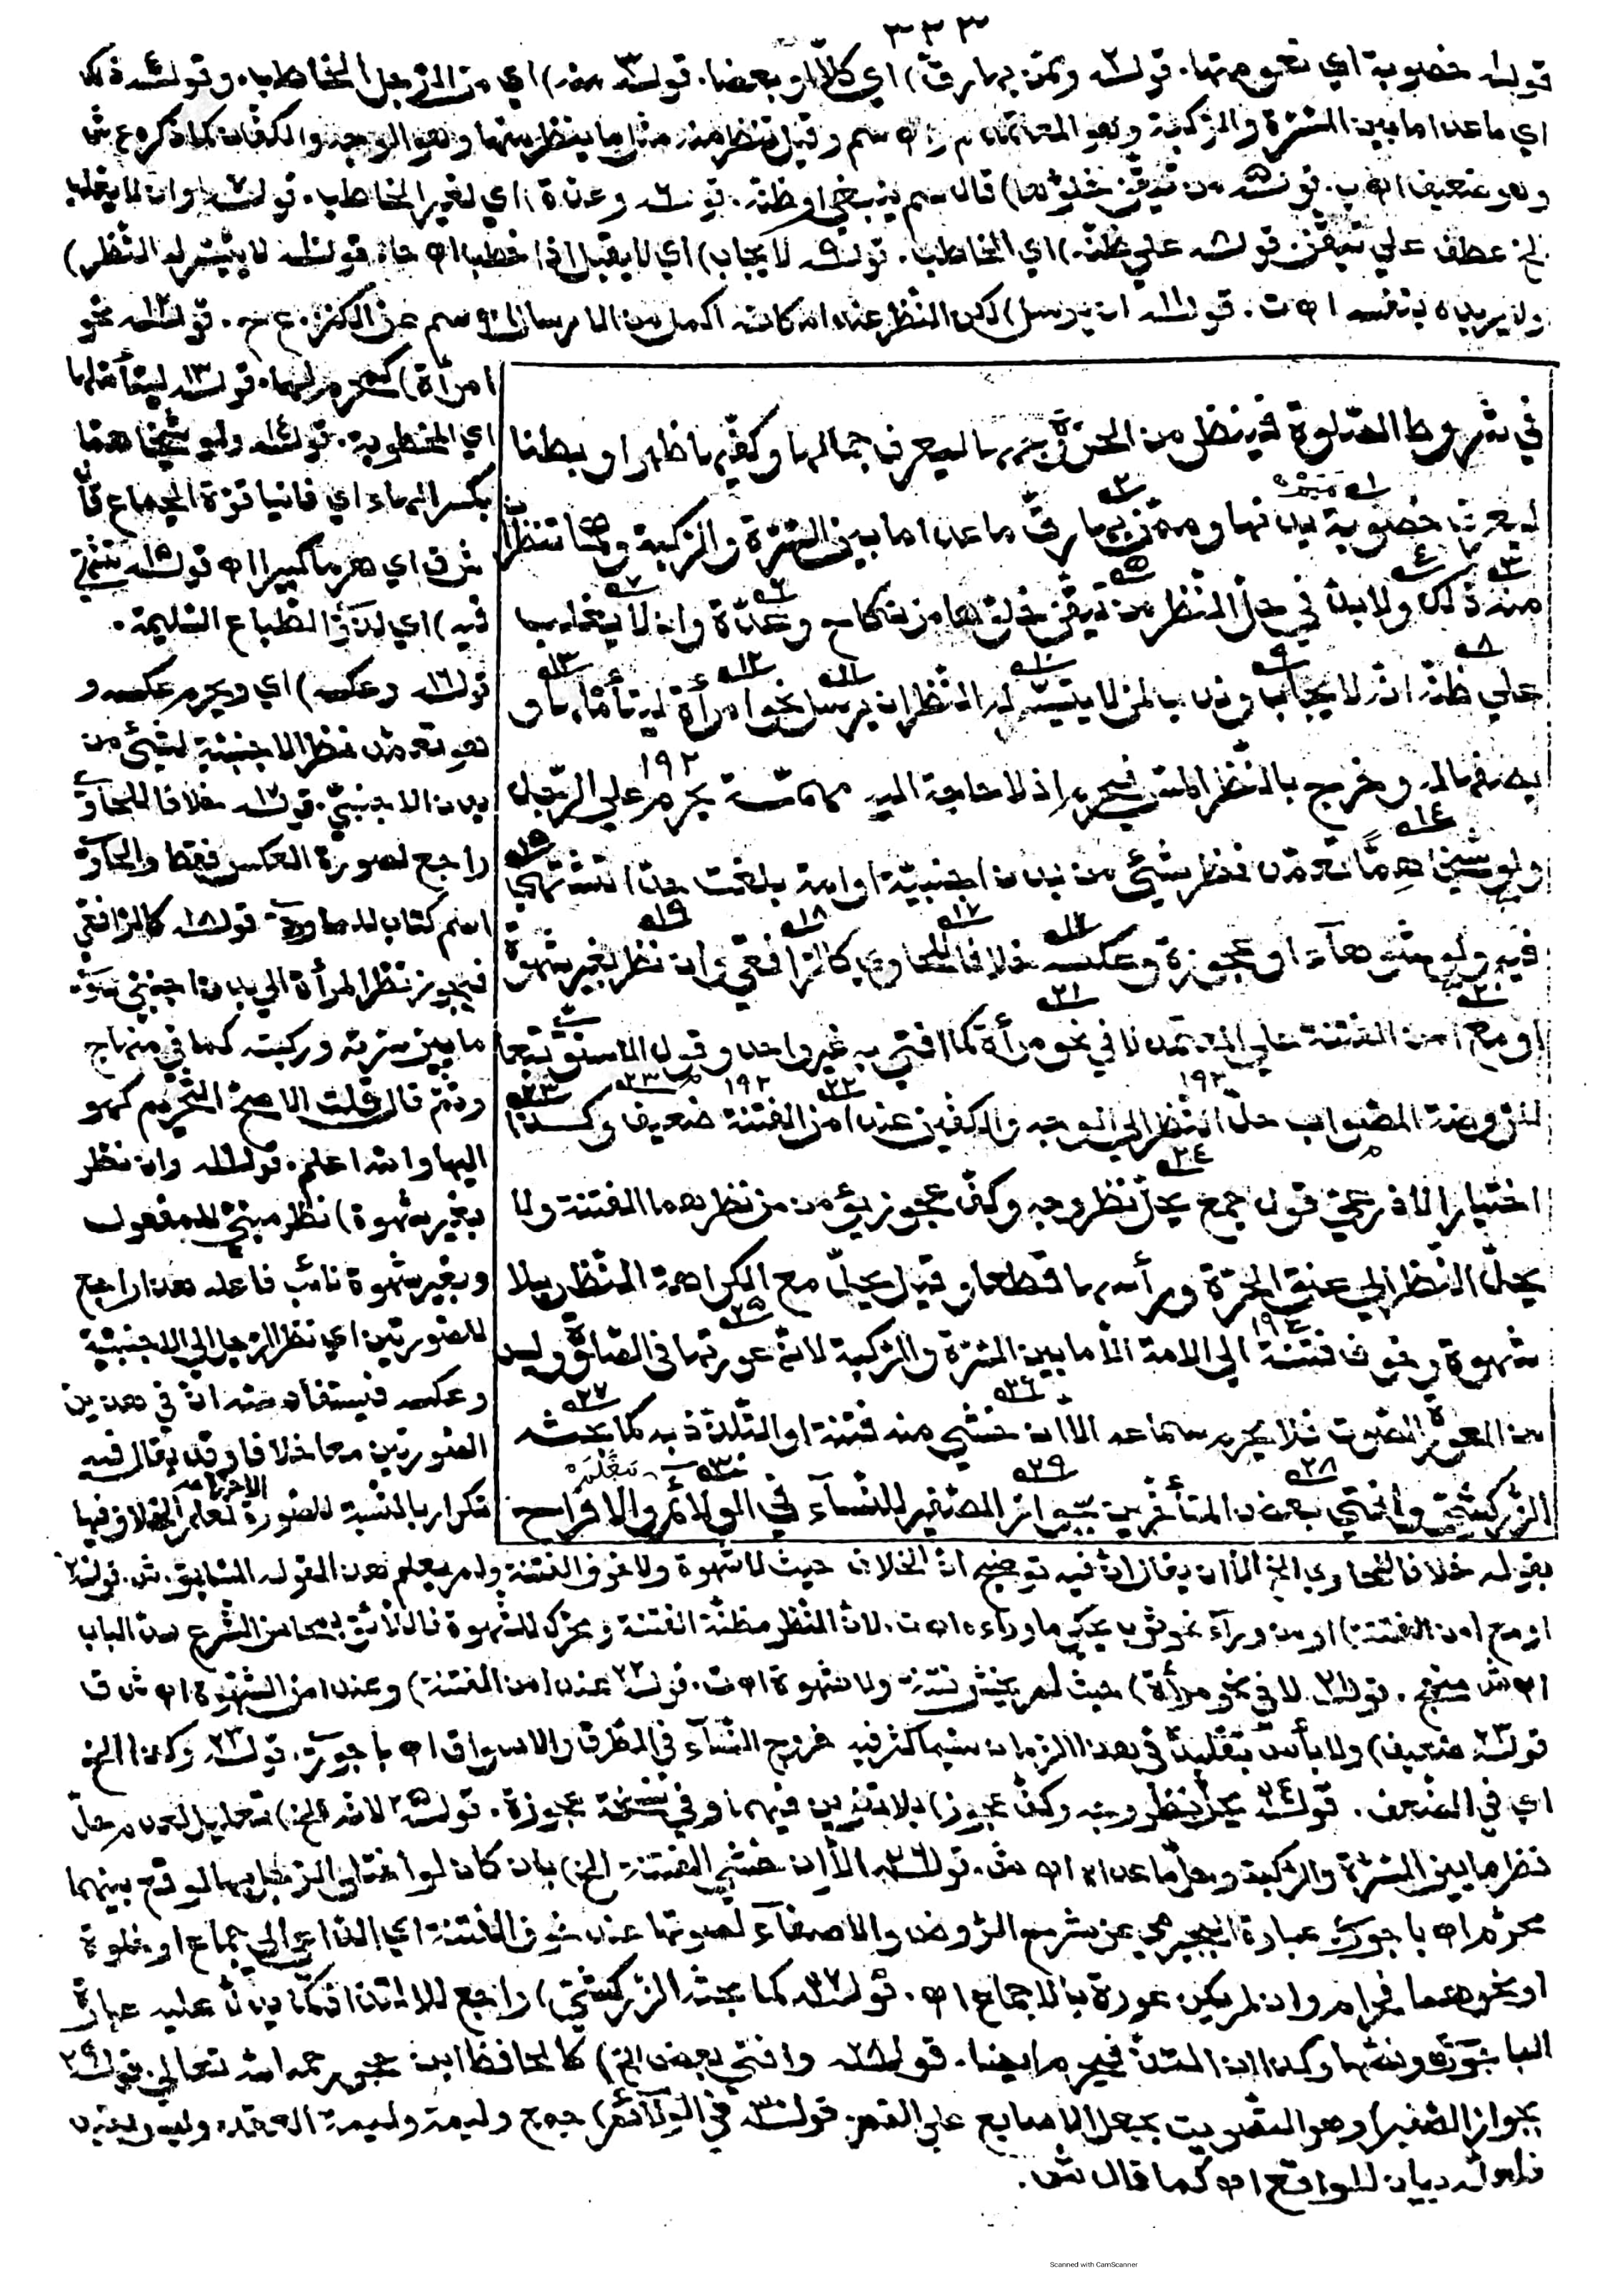 ٣٣٣
قوله خصوبة اي نعومتها. قوله ٢ ومن بها رق) اي كلا او بعضا. قوله ٣ منه) اي من الرجل المخاطب. وقوله ٤ ذلك
اي ما عدا ما بين السرة والركبة وهو المعتمد م ر اه سم وقيل تنظر منه مثل ما ينظر منها وهو الوجه والكفان كما ذكره ع ش
وهو ضعيف اه ب. قوله ٥ من تيقن خلوها) قال سم ينبغي او ظنه. قوله ٦ وعدة) اي لغير المخاطب. قوله ٧ وان لا يغلب
الخ عطف علي تيقن. قوله ٨ علي ظنه) اي المخاطب. قوله ٩ لا يجاب) اي لا يقبل اذا خطب اه حا. قوله ١٠ لا يتيسر له النظر)
ولا يريده بنفسه اه ت. قوله ١١ ان يرسل) لكن النظر عنده ان كانت اكمل من الارسال اه سم عن الكنز. ع ح. قوله ١٢ نحو
امرأة) كمحرم لها. قوله ١٣ ليتأملها
اي المخطوبة. قوله ١٤ ولو شيخا همّا
بكسر الهاء اي فانيا قوة الجماع
ش ق اي هرما كبيرا اه قوله ١٥ تشتهي
فيه) اي لذوي الطباع السليمة.
قوله ١٦ وعكسه) اي ويحرم عكسه و
هو تعمد نظر الاجنبية لشئ من
بدن الاجنبي. قوله ١٧ خلافا للحاوي
راجع لصورة العكس فقط والحاوي
اسم كتاب للماوردي قوله ١٨ كالرافعي
فيجوز نظر المرأة الي بدن اجنبي سوي
ما بين سرته وركبته كما في منهاج
وثم قال قلت الاصح التحريم كهو
اليها والله اعلم. قوله ١٩ وان نظر
بغير شهوة) نظر مبني للمفعول
وبغير شهوة نائب فاعله هذا راجع
للصورتين اي نظر الرجل الي الاجنبية
وعكسه فيستفاد منه ان في هذين
الصورتين معا خلافا وقد يقال فيه
تكرار بالنسبة للصورة الاخيرة لعلم الخلاف فيها
في شروط الصلوة فينظر من الحرة وجهها ليعرف جمالها وكفيها ظهرا وبطنا
ليعرف خصوبة بدنها وممن بها رق ما عدا ما بين السرة والركبة وهما تنظران
منه ذلك ولا بد في حل النظر من تيقن خلوها من نكاح وعدة وان لا يغلب
علي ظنه انه لا يجاب وندب لمن لا يتيسر له النظر ان يرسل نحو امرأة ليتأملها و
يصفها له وخرج بالنظر المس فيحرم اذ لا حاجة اليه مهمّة يحرم علي الرجل
ولو شيخا همّا تعمد نظر شئ من بدن اجنبية او امة بلغت حدا تشتهي
فيه ولو شوهآء او عجوزة وعكسه خلافا للحاوي كالرافعي وان نظر بغير شهوة
او مع امن الفتنة علي المعتمد لا في نحو مرأة كما افتي به غير واحد وقول الاسنوي تبعا
للروضة الصواب حل النظر الي الوجه والكفين عند امن الفتنة ضعيف وكذا
اختيار الاذرعي قول جمع يحل نظر وجه وكف عجوز يؤمن من نظرهما الفتنة ولا
يحل النظر الي عنق الحرة ورأسها قطعا وقيل يحل مع الكراهة النظر بلا
شهوة وخوف فتنة الي الامة الا ما بين السرة والركبة لانه عورتها في الصلوة وليس
من العورة الصوت فلا يحرم سماعه الا ان خشي منه فتنة او التلذذ به كما بحثه
الزركشي وافتي بعض المتأخرين بجواز الصغير للنسآء في الولائم والافراح
بقوله خلافا للحاوي الخ الا ان يقال ان فيه توضيح ان الخلاف حيث لا شهوة ولا خوف الفتنة ولم يعلم هذا القول السابق. ش. قوله ٢٠
او مع امن الفتنة) او من ورآء نحو ثوب يحكي ما ورآءه اه ت. لان النظر مظنة الفتنة ومحرك للشهوة فاللائق بمحاسن الشرع سد الباب
اه ش منهج. قوله ٢١ لا في نحو مرأة) حيث لم يخش فتنة ولا شهوة اه ت. قوله ٢٢ عند امن الفتنة) وعند امن الشهوة اه ش ق
قوله ٢٣ ضعيف) ولا بأس بتقليده في هذا الزمان سيما كثر فيه خروج النسآء في الطرق والاسواق اه باجوري. قوله ٢٣ وكذا الخ
اي في الضعف. قوله ٢٤ يحل نظر وجه وكف عجوز) بلا تنوين فيهما وفي نسخة عجوزة. قوله ٢٥ لانه الخ) تعليل لعدم حل
نظر ما بين السرة والركبة وحل ما عداه اه ش. قوله ٢٦ الا ان خشي الفتنة الخ) بان كان لو اختلي الرجل بها لوقع بينهما
محرم اه باجوري عبارة البجيرمي عن شرح الروض والاصغآء لصوتها عند خوف الفتنة اي الداعي الي جماع او خلوة
او نحوهما فحرام وان لم يكن عورة بالاجماع اه. قوله ٢٧ كما بحثه الزركشي) راجع للالتذاذ كما يدل عليه عبارة
الباجوري ونصها وكذا ان التذ فيحرم ايضا. قوله ٢٨ وافتي بعض الخ) كالحافظ ابن حجر رحمه الله تعالي. قوله ٢٩
بجواز الصفير) وهو التصويت بجعل الاصابع علي الفم. قوله ٣٠ في الولآئم) جمع وليمة وليمة العقد وليس بقيد
فلعله بيان للواقع اه كما قال ش.
Scanned with CamScanner